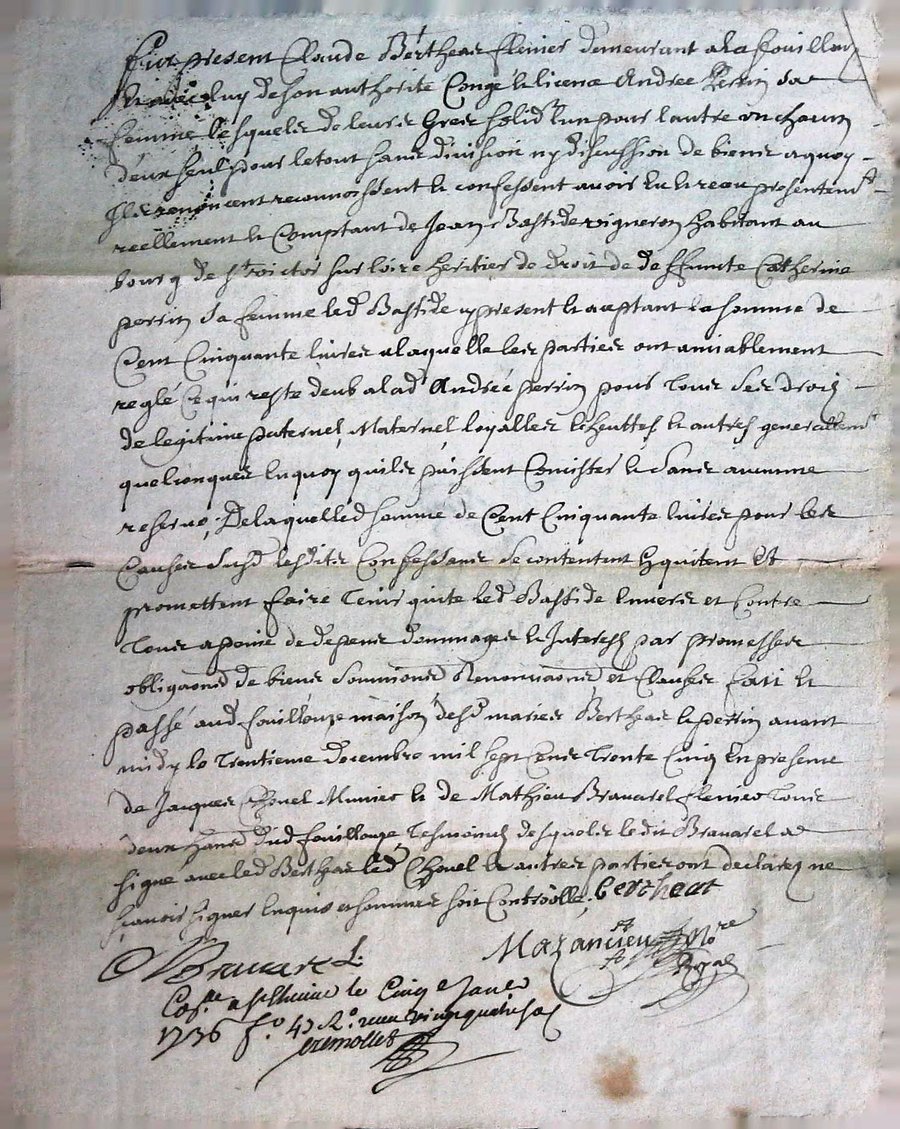 Fut present Claude Bertheas Clenier demeurant a la fouillouze
lequel de luy de son authorité Congé & licence Andrée Perrin sa
femme lesquels de leurs Grez solidt l'un pour lautre un chacun
deux seul pour le tout sans division ny discussion de biens a quoy
Ils renoncent reconnoissent & confessent avoir eu & receu presentemt
reellement & Comptant de Jean Bastide vigneron habitant au
bourg de st victor sur loire heritier de droit de deffunte Catherine
perrin sa femme led Bastide y present & aceptant la somme de
Cent Cinquante livres a laquelle les parties ont amiablement
reglé Ce qui reste deub a lad Andrée perrin pour tous ses droits
de legitime paternel, Maternel loyalles Echeuttes & autres generallemt
quelconques en quoy quils puissent Consister & sans aucune
reserve, De laquelle d somme de Cent Cinquante livres pour les
Causes susd lesdits Confessans se contentent & quitent Et
promettent faire tenir quite led Bastide Envers et Contre
tous a peine de depens dommages & Interests par promesses
obligaons de biens Soumions Renonciaons et Clauses fait &
passé aud fouillouze maison desd mariés Berthéas & perrin avant
midy le trentieme decembre mil sept cens trente Cinq En presence
de Jacques Chovel Munier & de Mathieu Bravard Clenier tous
deux habts dud fouillouze tesmoins desquels le dit Bravard a
signé avec led Bertheas led Chovel & autres parties ont declaré ne
sçavoir signer Enquis et sommés soit Controollé. bertheas
Bravard
Mazancieu No re
Royal
Colle a st Etienne le Cinq e Janv
1736 f.o 45 R.o receu vingt quatre sols